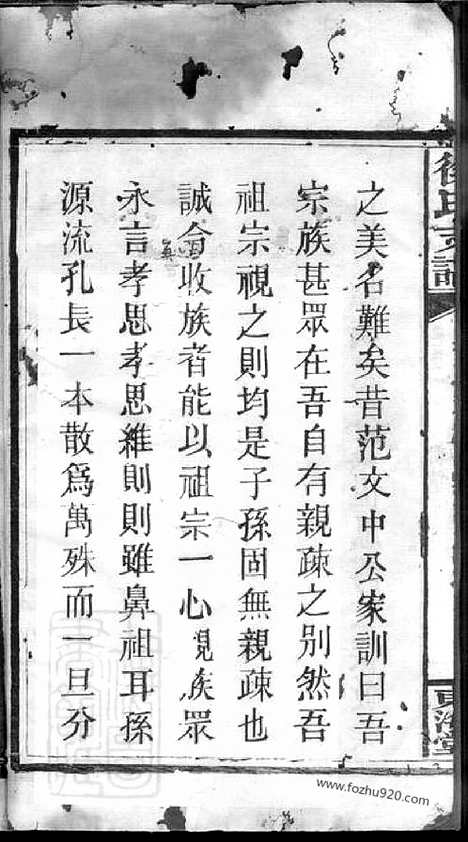 徐氏支譜
之美名難矣昔范文中公家訓曰吾
宗族甚眾在吾自有親疎之別然吾
祖宗視之則均是子孫固無親疎也
誠令收族者能以祖宗一心視族眾
永言孝思孝思維則則雖鼻祖耳孫
源流孔長一本散為萬殊而一旦分
東海堂
www.fozhu920.com